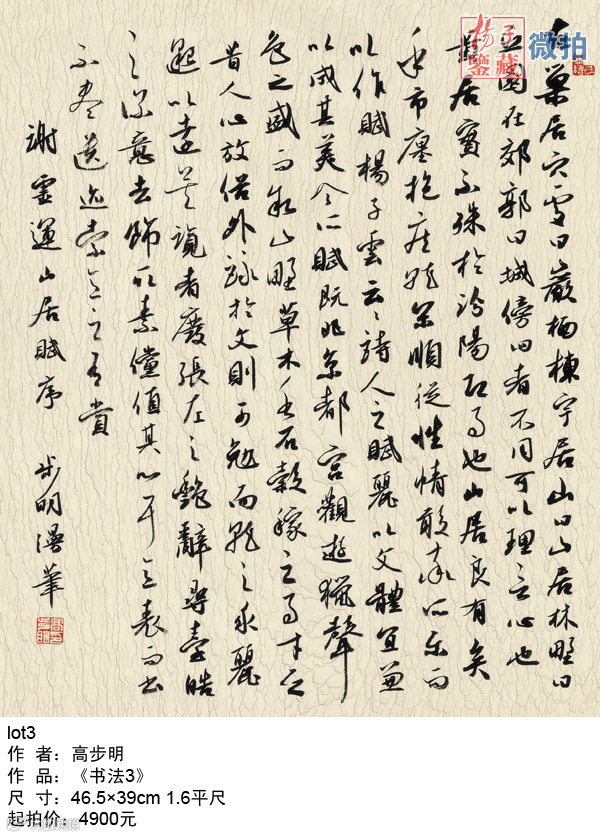 揚子
鑒藏
微拍
古巢居穴處曰巖栖棟宇居山曰山居林野曰
丘園在郊郭曰城傍四者不同可以理言心也
黃居實不殊於汾陽即事也山居良有矣
乎市廛抱疾就閑順從性情敢率所樂而
以作賦楊子雲云〻詩人之賦麗以文體宜兼
以成其美今所賦既非京都宮觀遊獵聲
色之盛而敘山野草木水石穀稼之事才乏
昔人心放俗外詠於文則可勉而就之求麗
邈以遠矣覽者廢張左之艷辭尋臺皓
之深意去飾取素儻值其心耳意表而書
不盡遺迹索意之有賞
謝靈運山居賦序 步明漫筆
lot3
作 者：高步明
作 品：《书法3》
尺 寸：46.5×39cm 1.6平尺
起拍价：4900元